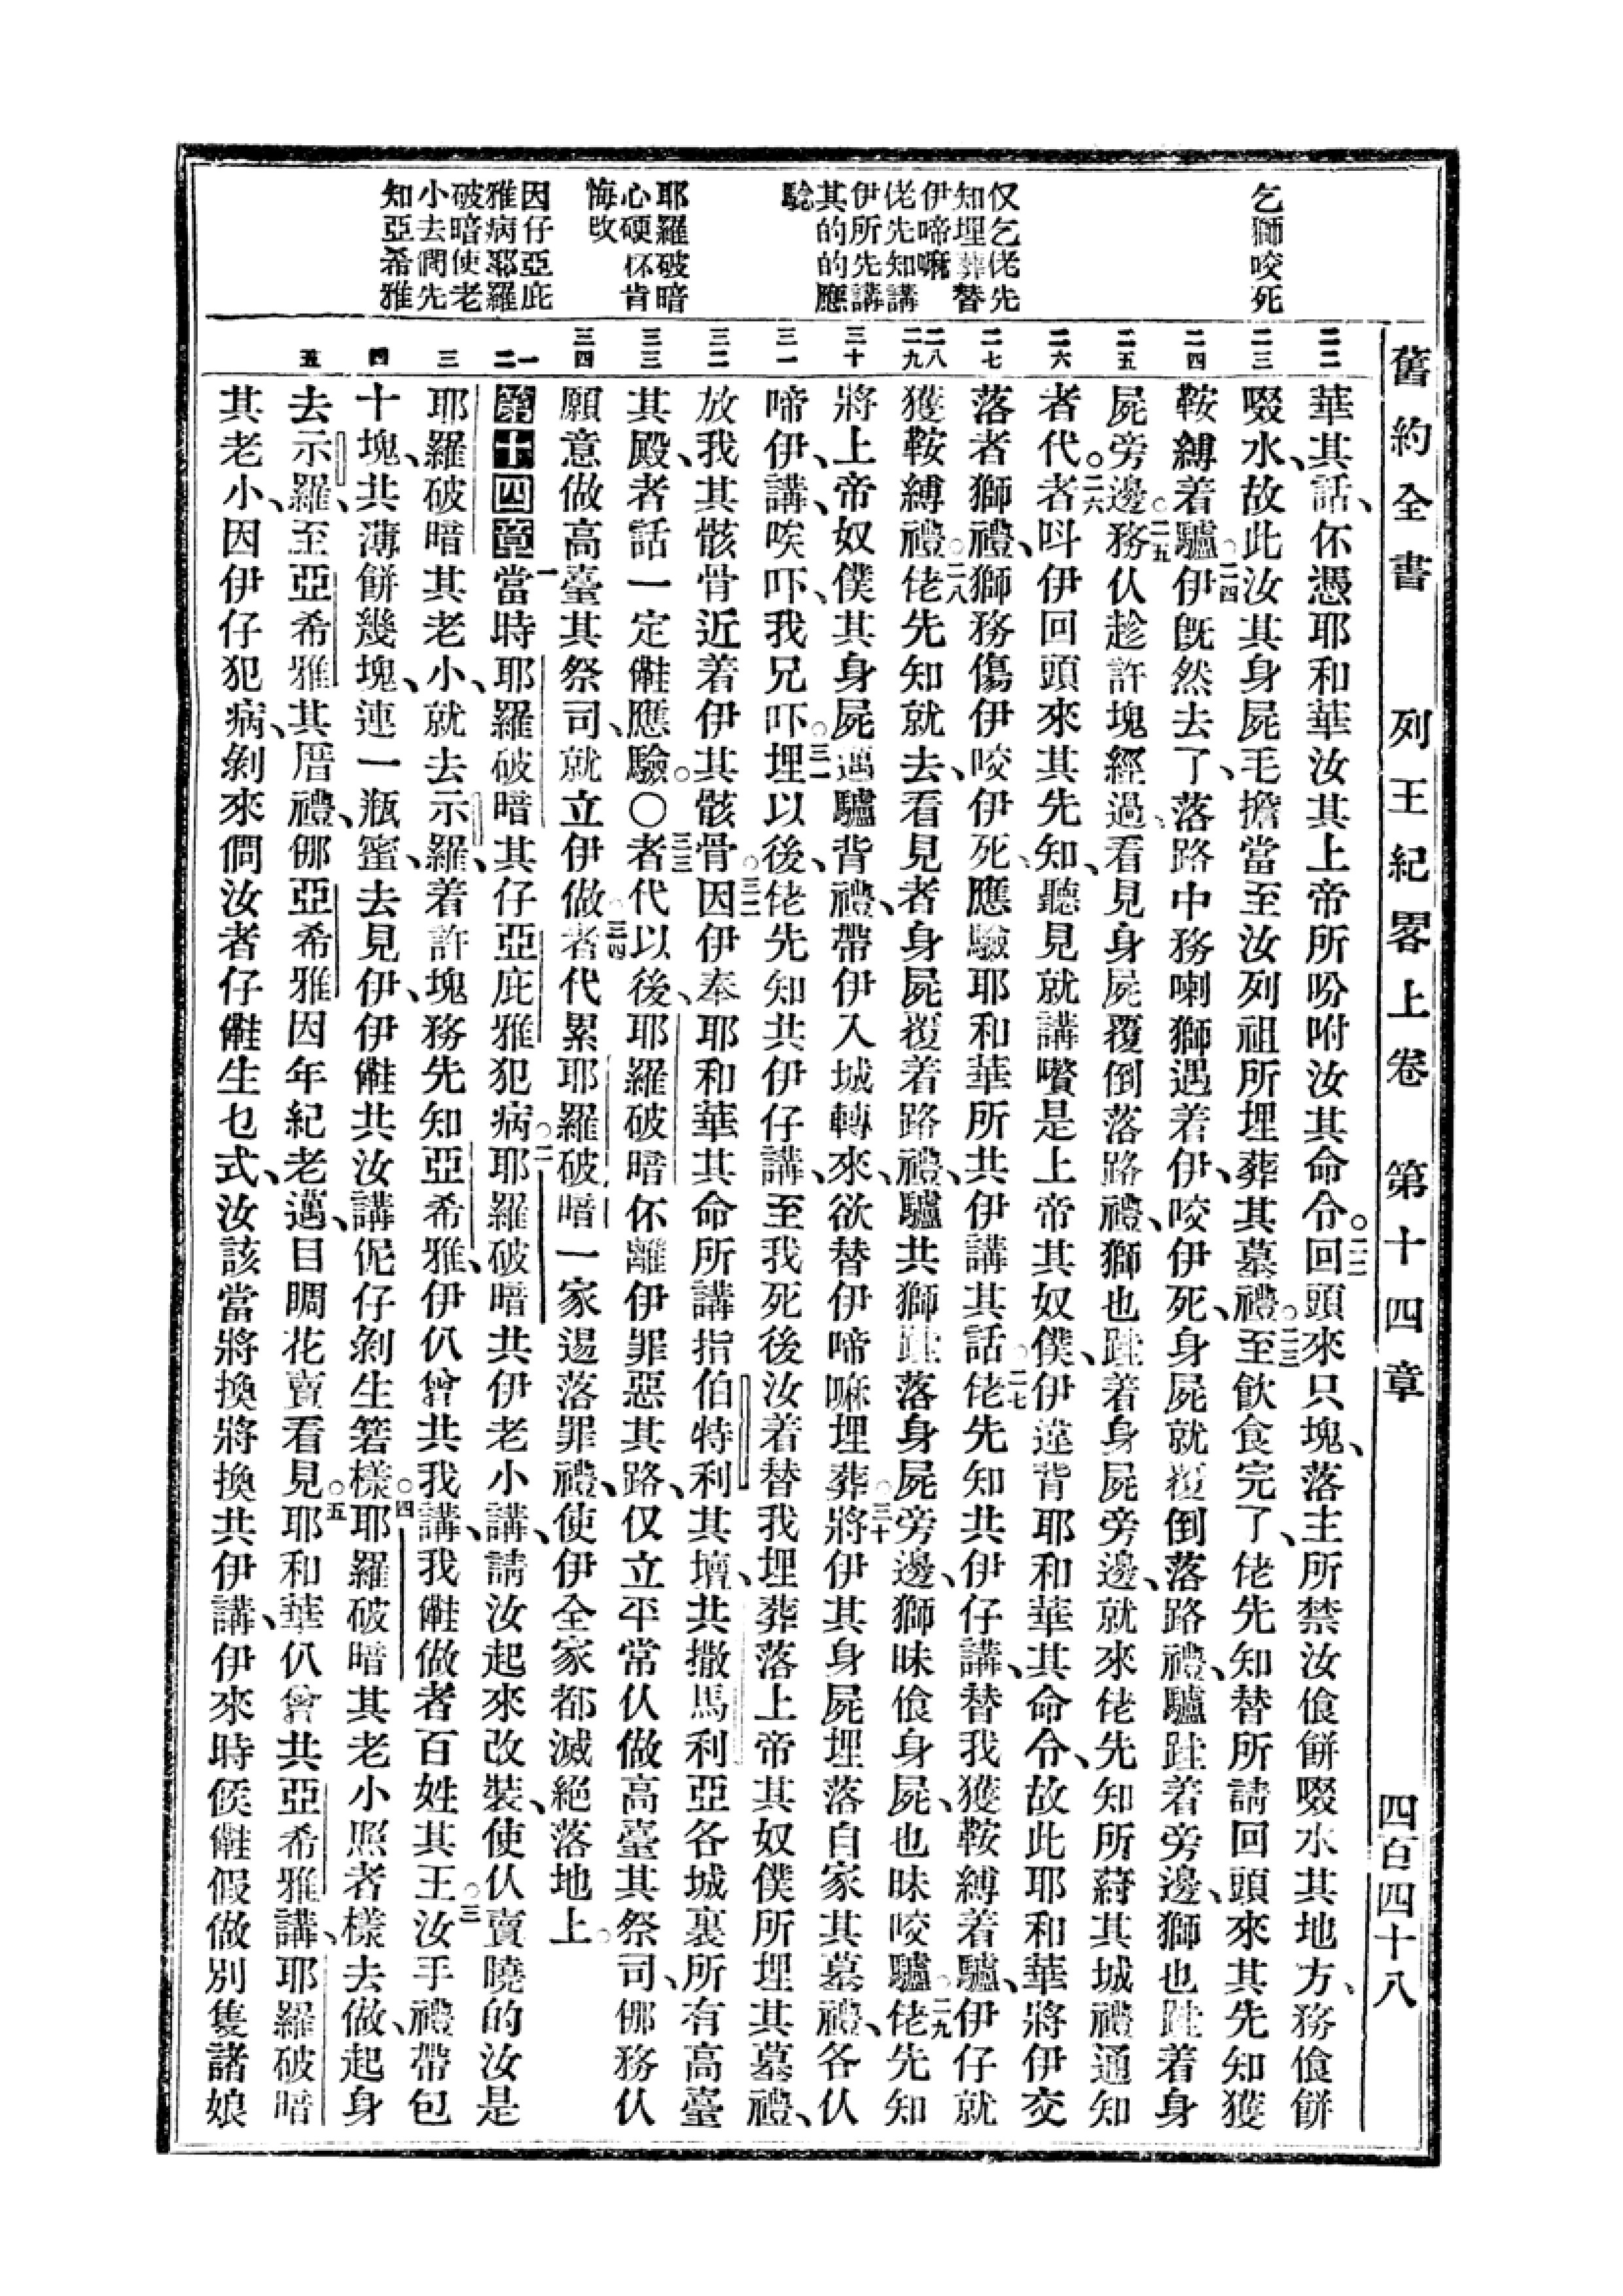 舊約全書　列王紀畧上卷　第十四章　四百四十八
乞獅咬死
仅乞佬先
知埋葬替
伊啼嘛
佬先知講
伊所先講
其的的應
騐
耶羅破暗
心硬怀肯
悔改
因仔亞庇
雅病耶羅
破暗使老
小去問先
知亞希雅
二二　二三　二四　二五　二六　二七　二八　二九　三十　三一　三二　三三　三四　一　二　三　四　五
華其話、伓憑耶和華汝其上帝所吩咐汝其命令。二二回頭來只塊、落主所禁汝偹餅啜水其地方、務偹餅
啜水、故此汝其身屍毛擔當至汝列祖所埋葬其墓禮。二三至飲食完了、佬先知替所請回頭來其先知獲
鞍縛着驢。二四伊旣然去了、落路中務喇獅遇着伊、咬伊死、身屍就覆倒落路禮、驢跬着旁邊、獅也跬着身
屍旁邊。二五務仈趁許塊經過、看見身屍覆倒落路禮、獅也跬着身屍旁邊、就來佬先知所蒔其城禮通知
者代。二六者呌伊回頭來其先知、聽見就講、嚽是上帝其奴僕、伊違背耶和華其命令、故此耶和華將伊交
落者獅禮、獅務傷伊咬伊死、應驗耶和華所共伊講其話。二七佬先知共伊仔講、替我獲鞍縛着驢、伊仔就
獲鞍縛禮。二八佬先知就去、看見者身屍覆着路禮、驢共獅跬落身屍旁邊、獅昧偹身屍、也昧咬驢。二九佬先知
將上帝奴僕其身屍、邁驢背禮、帶伊入城轉來、欲替伊啼嘛埋葬。三十將伊其身屍埋落自家其墓禮、各仈
啼伊、講、唉吓、我兄吓。三一埋以後、佬先知共伊仔講、至我死後汝着替我埋葬落上帝其奴僕所埋其墓禮、
放我其骸骨近着伊其骸骨。三二因伊奉耶和華其命所講指伯特利其壇、共撒馬利亞各城裏所有高臺
其殿、者話一定𣍐應驗。〇三三者代以後、耶羅破暗伓離伊罪惡其路、仅立平常仈做高臺其祭司、儞務仈
願意做高臺其祭司、就立伊做。三四者代累耶羅破暗一家逿落罪禮、使伊全家都滅絕落地上。
第十四章　一當時耶羅破暗其仔亞庇雅犯病。二耶羅破暗共伊老小講、請汝起來改裝、使仈賣曉的汝是
耶羅破暗其老小、就去示羅、着許塊務先知亞希雅、伊仈曾共我講、我𣍐做者百姓其王。三汝手禮帶包
十塊、共薄餅幾塊、連一瓶蜜、去見伊、伊𣍐共汝講伲仔剝生箬樣。四耶羅破暗其老小照者樣去做、起身
去示羅、至亞希雅其厝禮、儞亞希雅因年紀老邁、目睭花賣看見。五耶和華仈曾共亞希雅講、耶羅破暗
其老小、因伊仔犯病、剝來問汝者仔𣍐生乜式、汝該當將換將換共伊講、伊來時候𣍐假做別隻諸娘